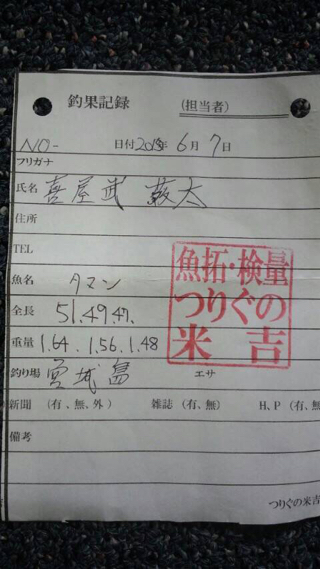 釣果記録 (担当者)
NO-
日付2015年 6月 7日
フリガナ
氏名 喜屋武
住所
TEL
魚名 タマン
全長 51.49.47.
重量 1.64.1.56.1.48
釣り場 宮城島 エサ
魚拓・検量
つりぐの
米吉
新聞 (有、無、外) 雑誌 (有、無) H、P (有、無
備考
つりぐの米吉